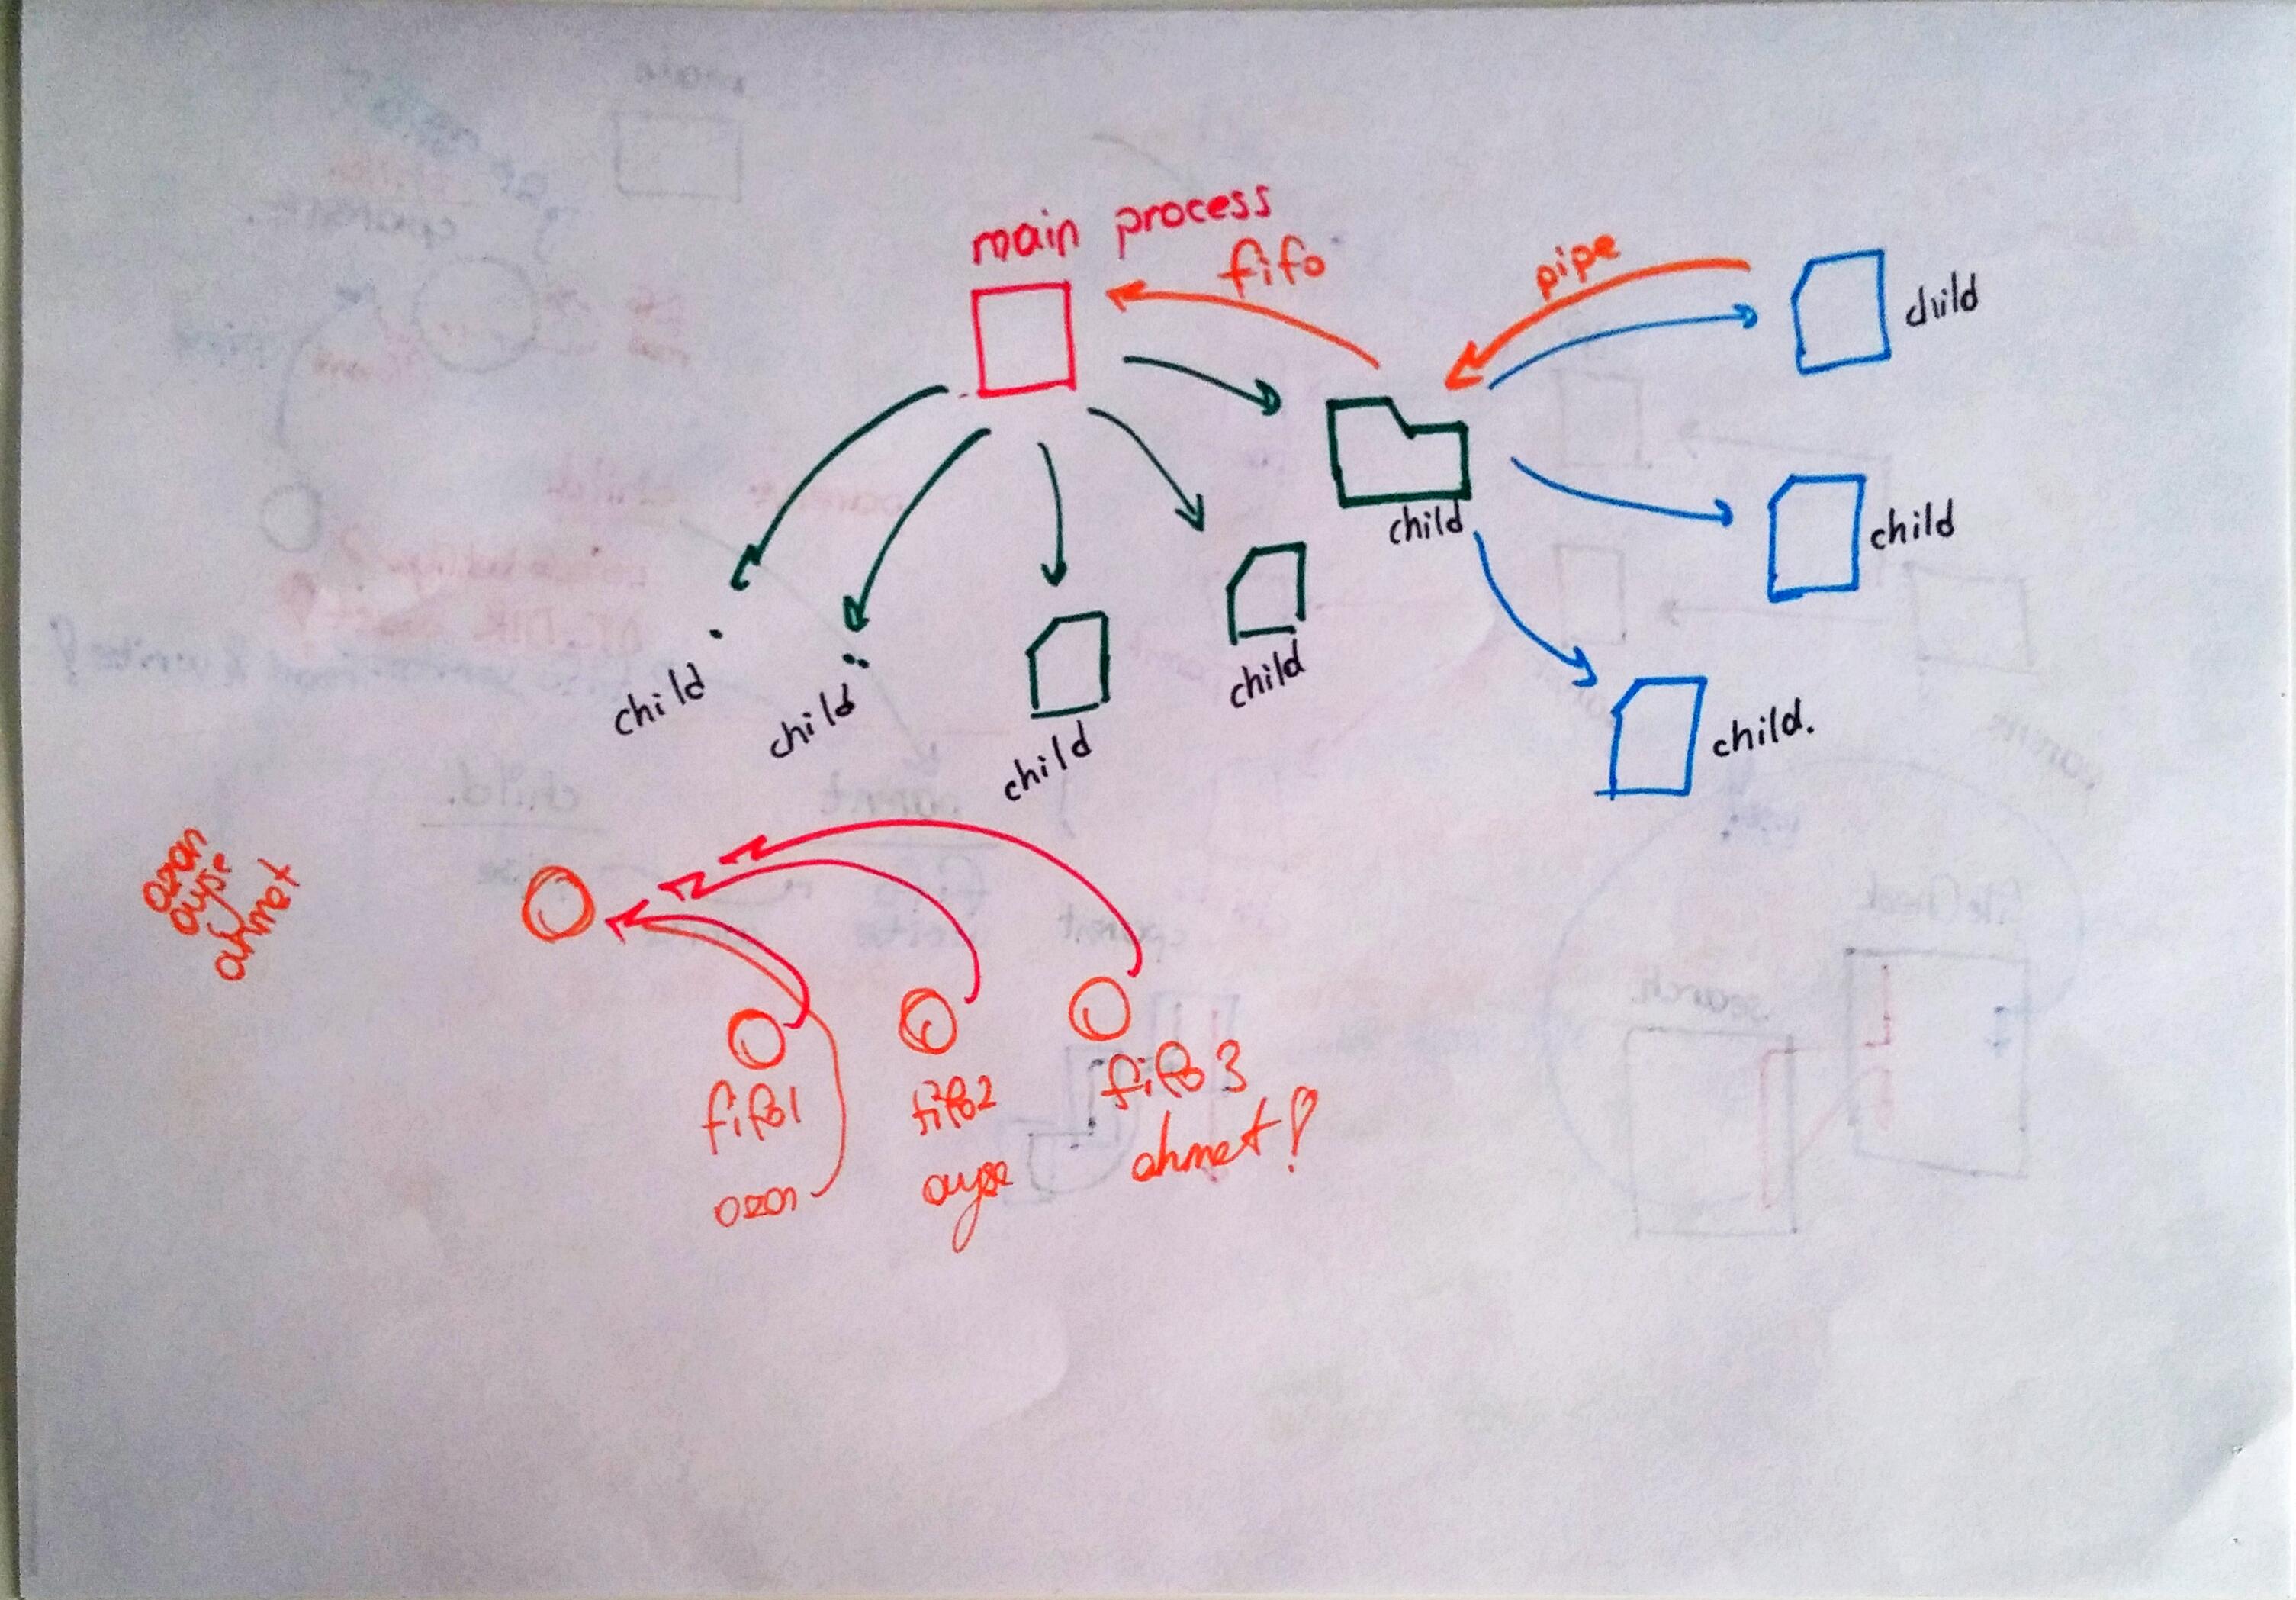 main process
fifo
pipe
child
child
child
child
child.
child
child
child
child
ozan
ayşe
ahmet
fifo1
fifo2
fifo3
ozan
ayşe
ahmet!